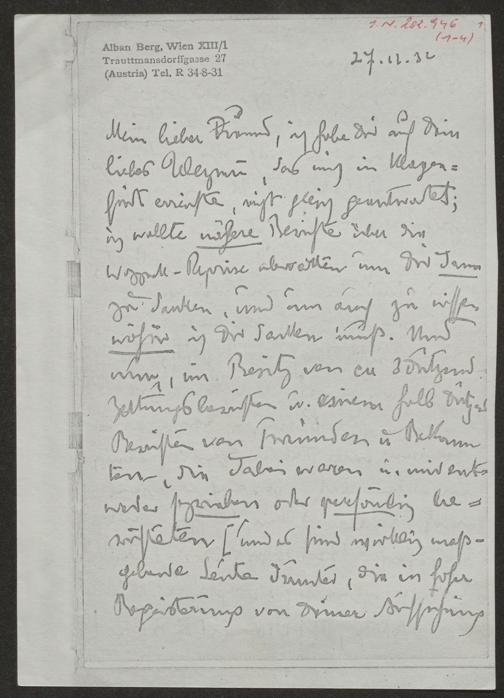 I.N. 202.946 1
(1-4)
Alban Berg, Wien XIII/1
Trauttmansdorffgasse 27
(Austria) Tel. R 34-8-31
27.11.32
Mein lieber Freund, ich habe Dir auf Dein
liebes Telegramm, das mich in Klagen=
furt erreichte, nicht gleich geantwortet;
ich wollte nähere Berichte über die
Wozzeck-Reprise abwarten um Dir dann
zu danken, und um auch zu wissen
wofür ich Dir danken muß. Und
nun, im Besitz von ca 3 Dutzend
Zeitungsberichten u. einem halb Dutzend
Berichten von Freunden u Bekann
ten, die dabei waren u. mir ent=
weder schrieben oder persönlich be=
richteten [und es sind wirklich maß=
gebende Leute darunter, die in hoher
Begeisterung von Deiner Aufführung